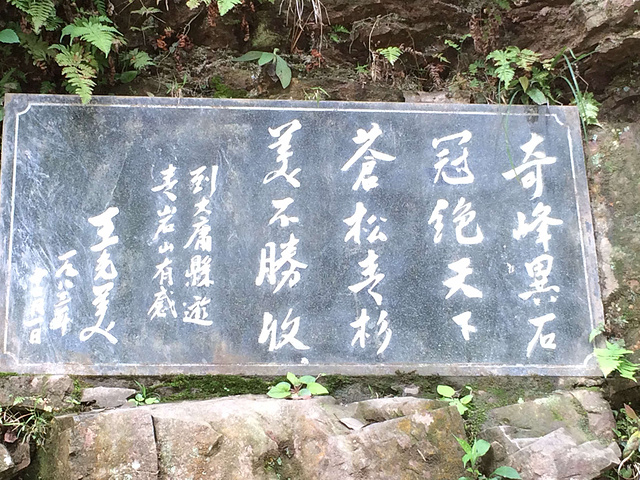 奇峰異石
冠绝天下
蒼松青杉
美不勝收
到大庸縣逛
青岩山有感
王光美
一九八三年